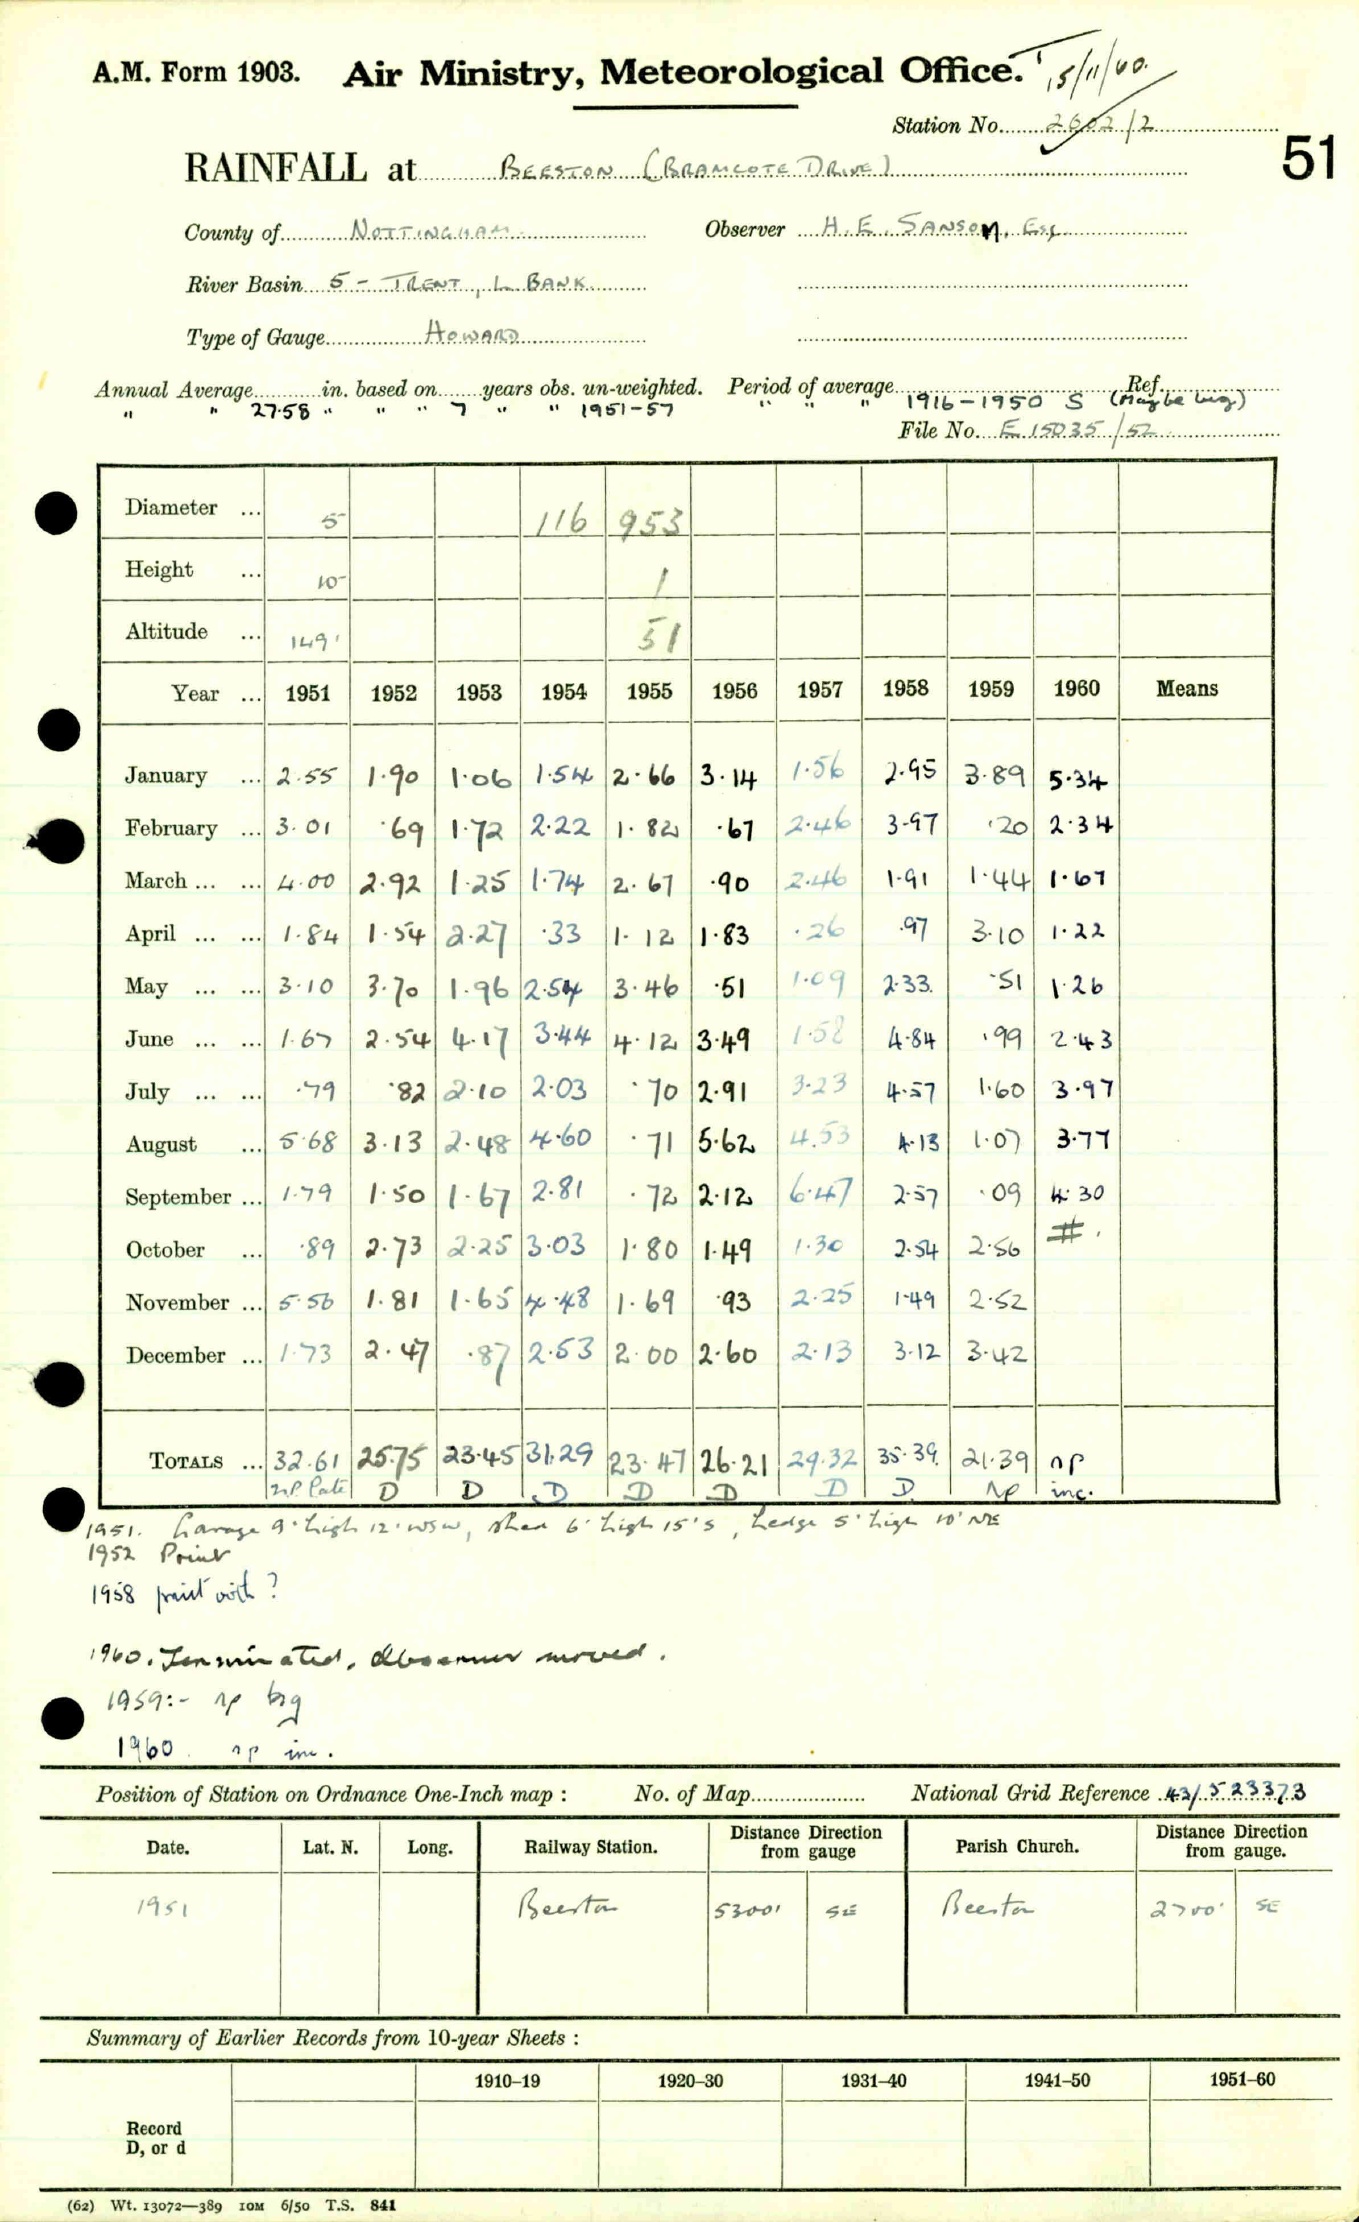 A.M. Form 1903. Air Ministry, Meteorological Office. 15/11/60.
Station No. 2602/2
51
RAINFALL at BEESTON (BRAMCOTE DRIVE)
County of NOTTINGHAM. Observer H. E. SANSOM, Esq.
River Basin 5 - TRENT, L BANK.
Type of Gauge HOWARD
Annual Average in. based on years obs. un-weighted. Period of average Ref.
" " 27.58 " " " 7 " " 1951-57 " " " 1916-1950 S (Maybe big)
File No. E 15035/52
Diameter ... 5 116 953
Height ... 10 1
Altitude ... 149' 51
Year ... 1951 1952 1953 1954 1955 1956 1957 1958 1959 1960 Means
January ... 2.55 1.90 1.06 1.54 2.66 3.14 1.56 2.95 3.89 5.34
February ... 3.01 .69 1.72 2.22 1.82 .67 2.46 3.97 .20 2.34
March ... ... 4.00 2.92 1.25 1.74 2.67 .90 2.46 1.91 1.44 1.67
April ... ... 1.84 1.54 2.27 .33 1.12 1.83 .26 .97 3.10 1.22
May ... ... 3.10 3.70 1.96 2.54 3.46 .51 1.09 2.33. .51 1.26
June ... ... 1.67 2.54 4.17 3.44 4.12 3.49 1.58 4.84 .99 2.43
July ... ... .79 .82 2.10 2.03 .70 2.91 3.23 4.57 1.60 3.97
August ... 5.68 3.13 2.48 4.60 .71 5.62 4.53 4.13 1.07 3.77
September ... 1.79 1.50 1.67 2.81 .72 2.12 6.47 2.57 .09 4.30
October ... .89 2.73 2.25 3.03 1.80 1.49 1.30 2.54 2.56 #.
November ... 5.56 1.81 1.65 4.48 1.69 .93 2.25 1.49 2.52
December ... 1.73 2.47 .87 2.53 2.00 2.60 2.13 3.12 3.42
TOTALS ... 32.61 25.75 23.45 31.29 23.47 26.21 29.32 35.39. 21.39 np
D D D D D D D np inc.
1951. Garage 9' high 12' WSW, shed 6' high 15' S, hedge 5' high 10' NE
1952 Point
1958 print with ?
1960. Terminated. Observer moved.
1959:- np big
1960. np inc.
Position of Station on Ordnance One-Inch map : No. of Map National Grid Reference 43/523373
Date. Lat. N. Long. Railway Station. Distance Direction from gauge Parish Church. Distance Direction from gauge.
1951 Beeston 5300' SE Beeston 2700' SE
Summary of Earlier Records from 10-year Sheets :
1910–19 1920–30 1931–40 1941–50 1951–60
Record
D, or d
(62) Wt. 13072—389 10M 6/50 T.S. 841